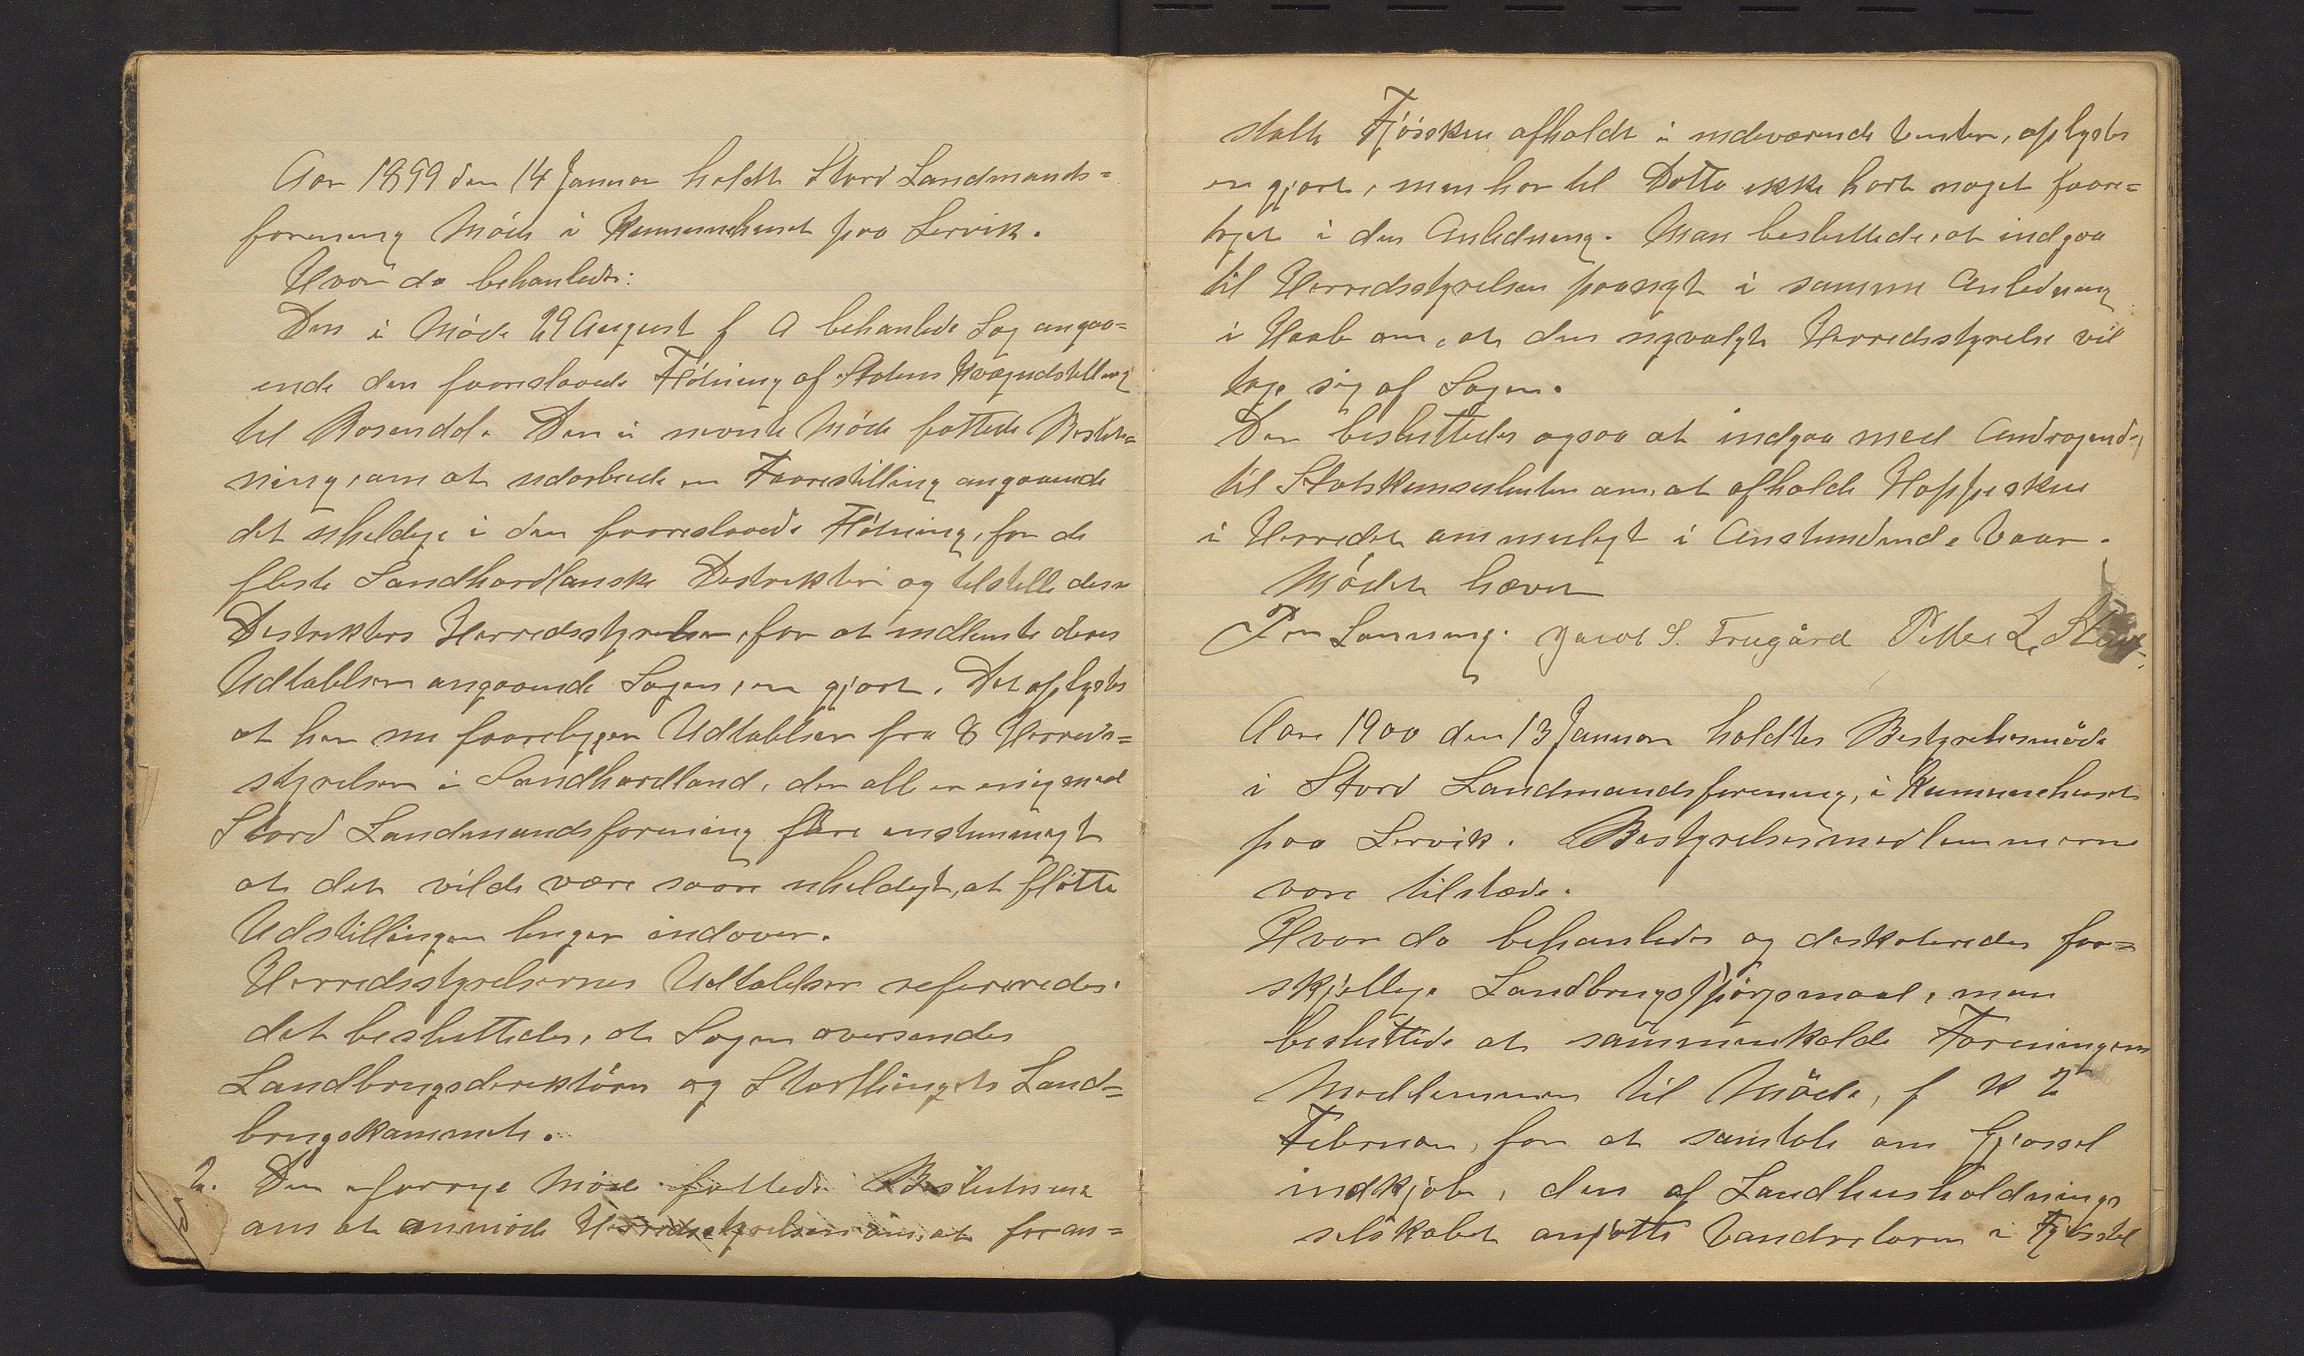 Aar 1899 den 14 Januar holdt Stord Landmands=
forening Møde i Kummunehuset paa Lervik.
Hvor da behanledes:
Den i Møde 29 August f A behanlede Sag angaa=
ende den foareslaaede Fløtning af Statens Kvægudstilling
til Rosendal. Den i nevnte Møde fattede Beslut=
ning, om at udarbeide en Foarestilling angaaende
det uheldige i den foareslaaede Fløtning, for de
fleste Søndhordlanske Destrikter og tilstelle disse
Destrikters Herredsstyrelser, for at indhente deres
Udtalelser angaaende Sagen, er gjort. Det oplystes
at her nu foareligger Udtalelser fra 8 Herreds=
styrelser i Søndhordland, der all er enig med
Stord Landmandsforening flere enstemmigt
at det vilde være saare uheldigt, at fløtte
Udstillingen lenger indover.
Herredsstyrelsernes Udtalelser refereredes.
det besluttedes, at Sagen oversendes
Landbrugsderektøren og Storthingets Land=
brugskommete.
2. Den i forrige Møde fattede Beslutning
om at anmode Herredsstyrelsen om, at foran=
stalte Fjøsskue afholdt i indeværende Venter, oplystes
er gjort, men har til Datto ikke hørt noget foare=
taget i den Anledning. Man besluttede, at indgaa
til Herredsstyrelsen paanyt i samme Anledning
i Haab om, at den nyvalgte Herredsstyrelse vil
tage sig af Sagen.
Der besluttedes ogsaa at indgaa med Andragende
til Statskonsulenten om, at afholde Hoppeskue
i Herredet om muligt i Anstundende Vaar.
Mødet hævet
Per Lønning. Jacob S. Trugård Peder L.
Aar 1900 den 13 Januar holdtes Bestyrelsesmøde
i Stord Landmandsforening, i Kummunehuset
paa Lervik. Bestyrelsesmedlemmerne
vare tilstæde.
Hvor da behanledes og deskoteredes for=
skjellige Landbrugsspørgsmaal, man
besluttede at sammenkalde Foreningens
Medlemmer til Møde, f K 2
Februar, for at samtale om Gjøssel
indkjøb, den af Landhusholdnings
selskabet ansatte Vandrelærer i Fjøsstel